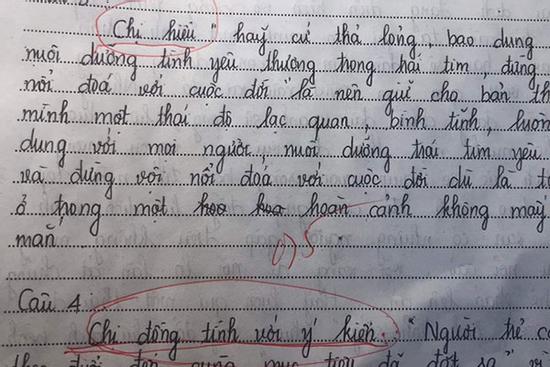 Chị hiểu " hãy cứ thả lỏng, bao dung
nuôi dưỡng tình yêu thương trong trái tim, đừng
nổi đoá với cuộc đời" là nên giữ cho bản th
mình một thái độ lạc quan, bình tĩnh, luôn
dung với mọi người, nuôi dưỡng trái tim yêu
và đừng với nổi đoá với cuộc đời dù là t
ở trong một hoàn cảnh không may
mắn
0,5
Câu 4
Chị đồng tình với ý kiến: " Người trẻ c
theo đuổi đam cùng mục đã đặt ra"